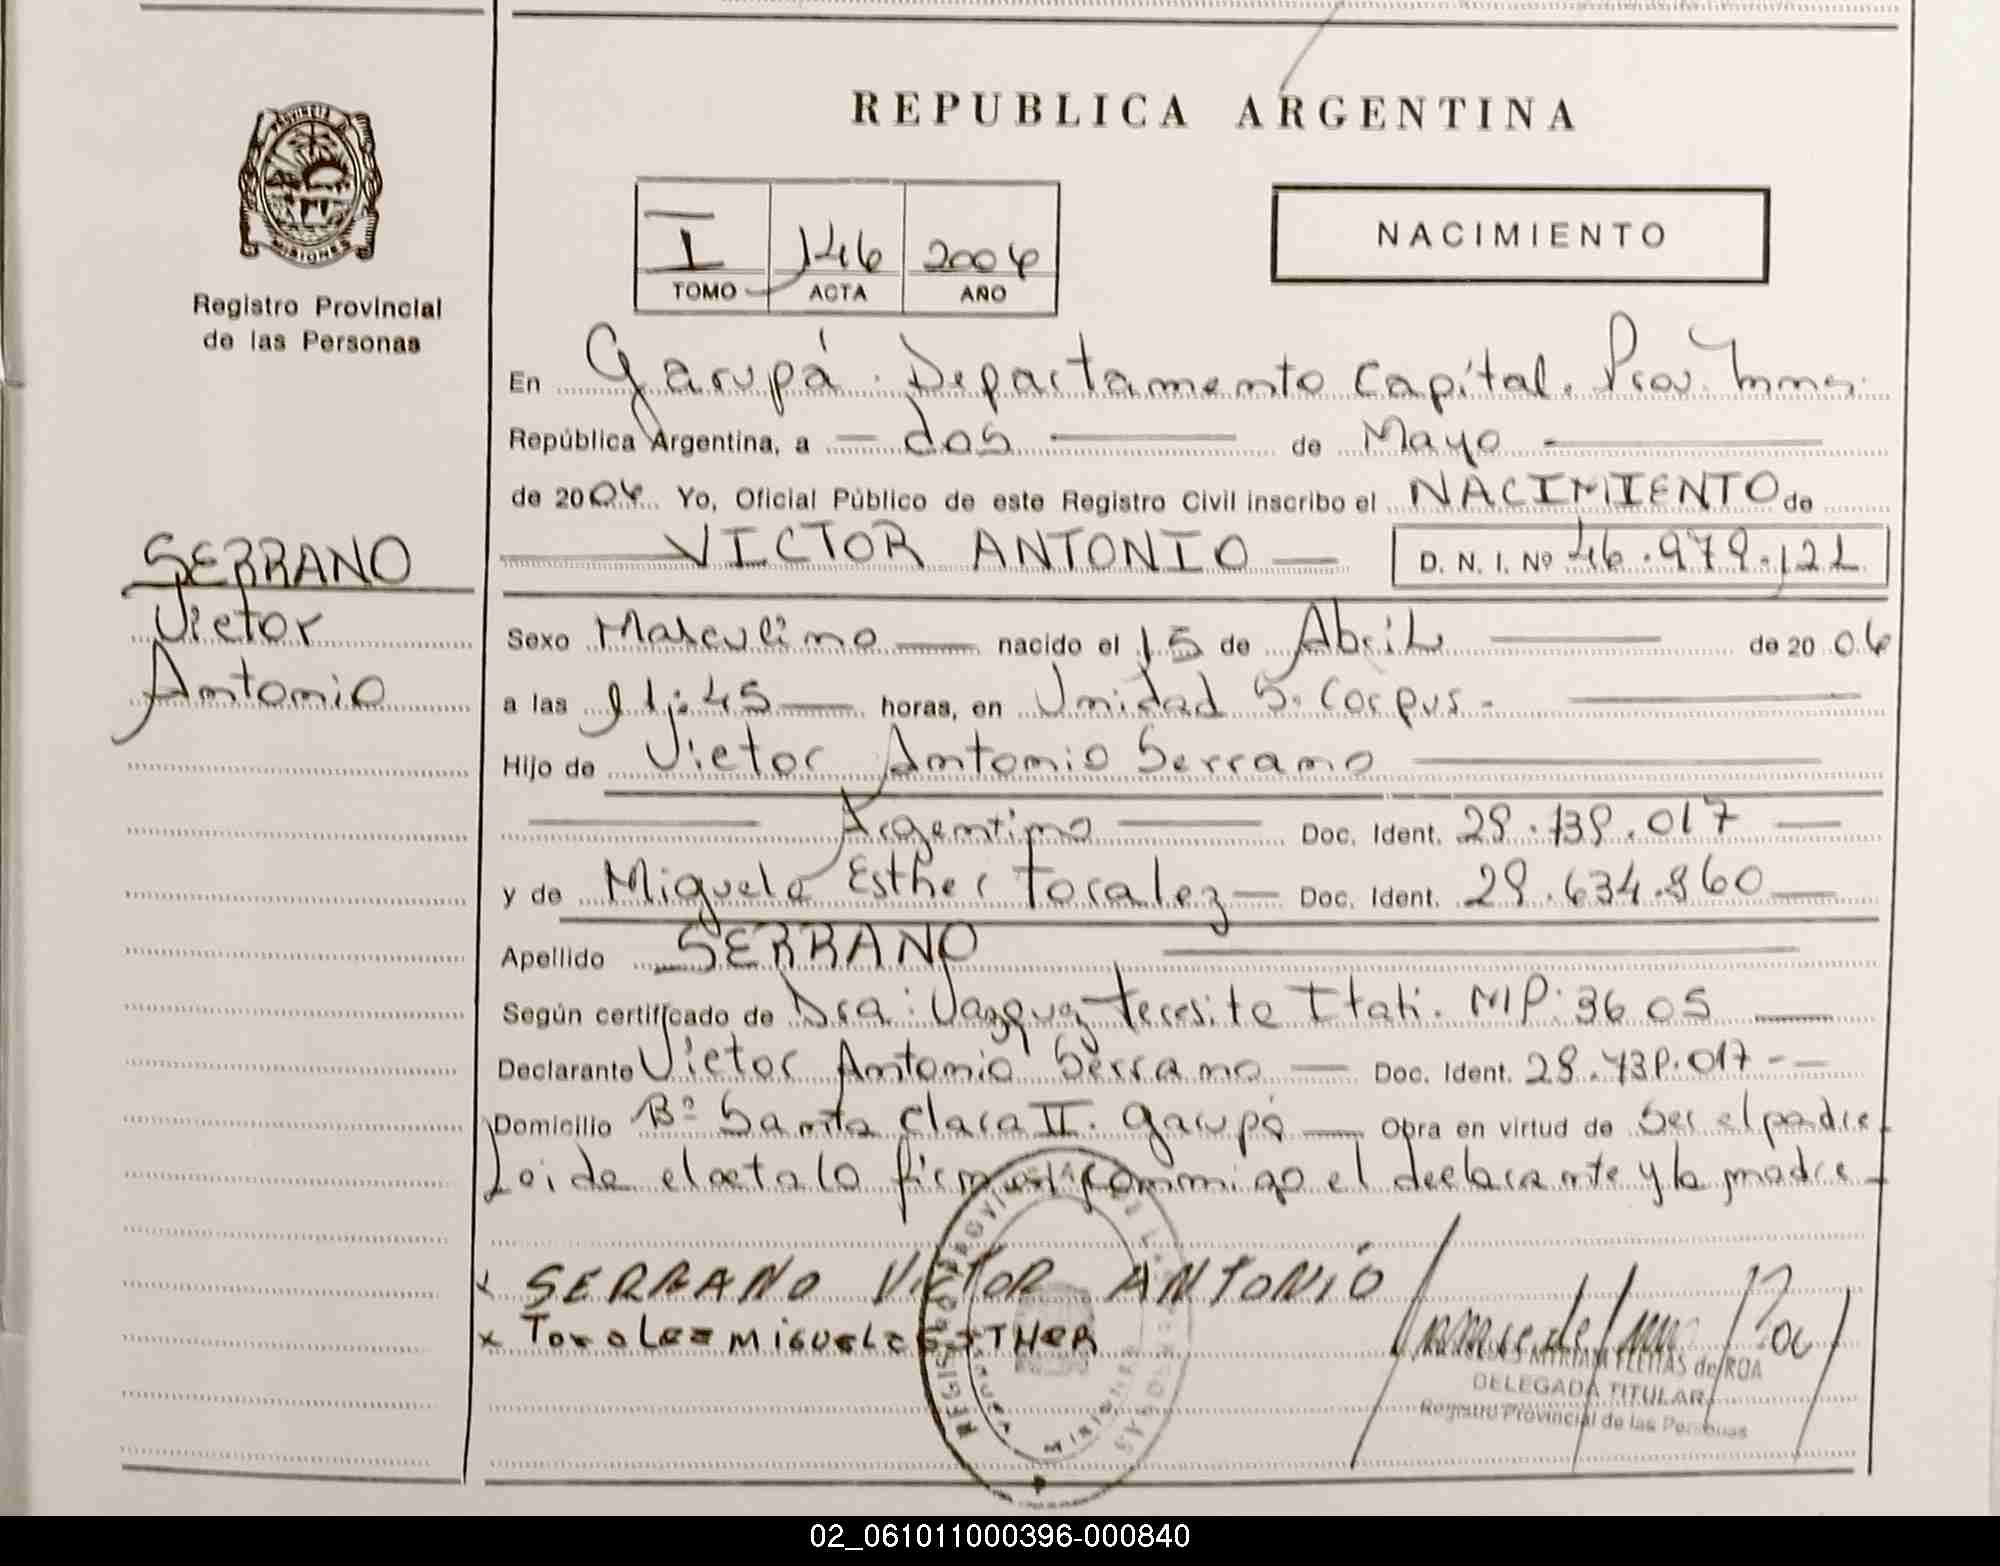 REPUBLICA ARGENTINA
PROVINCIA DE MISIONES
Registro Provincial
de las Personas
I 146 2006
TOMO ACTA AÑO
NACIMIENTO
En Garupá. Departamento Capital. Prov. Mnes.
República Argentina, a dos de Mayo
de 2006 Yo, Oficial Público de este Registro Civil inscribo el NACIMIENTO de
VICTOR ANTONIO D. N. I. Nº 46.979.122
SERRANO
Victor
Antonio
Sexo Masculino nacido el 15 de Abril de 2006
a las 21:45 horas, en Unidad S. Corpus.
Hijo de Victor Antonio Serrano
Argentino Doc. Ident. 017
y de Miguela Esther Toralez Doc. Ident. 634
Apellido SERRANO
Según certificado de Dra: Vazquez Teresita Itati. MP: 3605
Declarante Victor Antonio Serrano Doc. Ident. 017
Domicilio Bº Santa Clara II. Garupá Obra en virtud de ser el padre
Loida el acta lo firman conmigo el declarante y la madre
x SERRANO VICTOR ANTONIO
x Toralez MIGUELA ESTHER
MIRIAM FLEITAS de ROA
DELEGADA TITULAR
Registro Provincial de las Personas
02_061011000396-000840